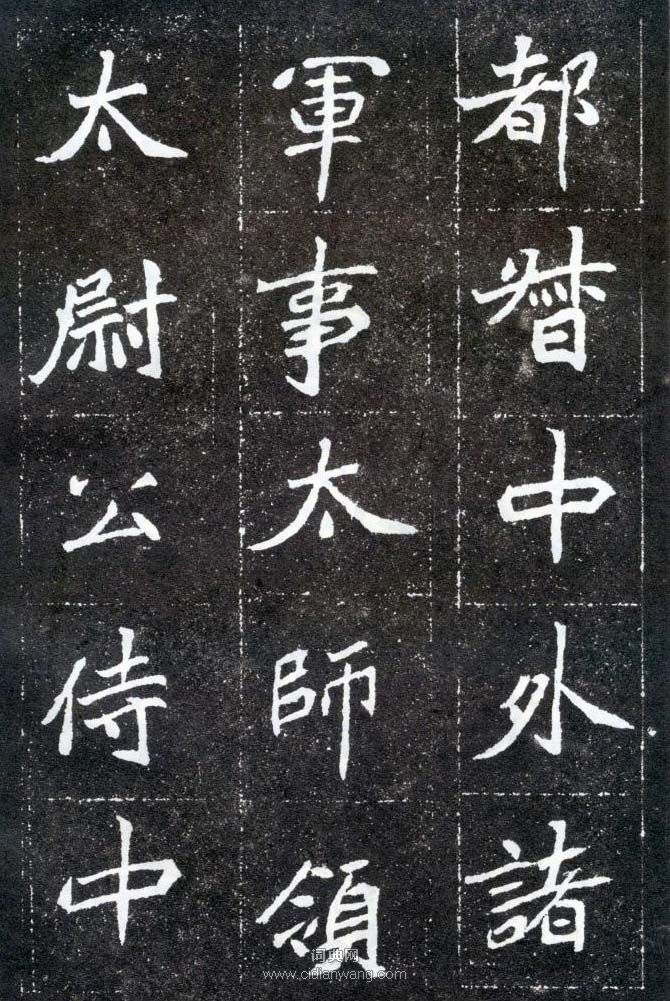 都督中外諸
軍事太師領
太尉公侍中
词典网
www.cidianwang.com